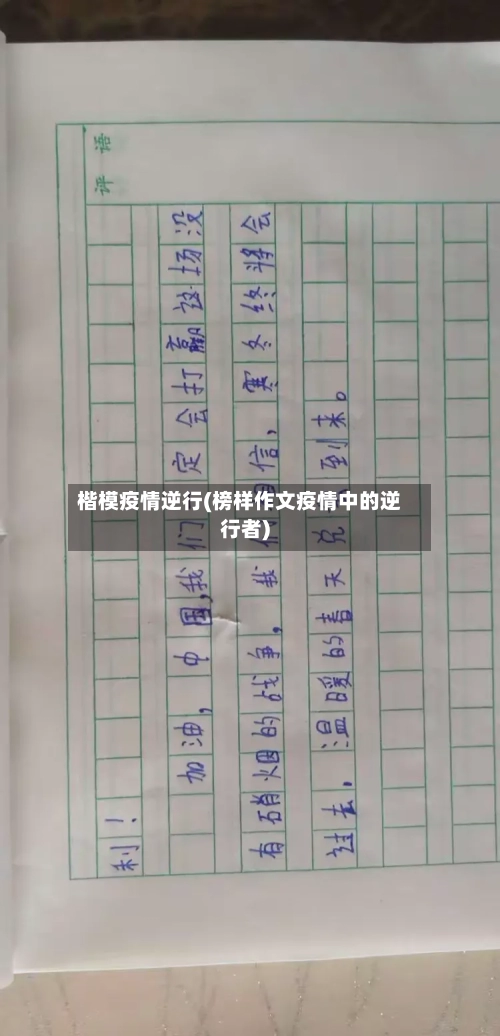 评 语
利！
加油，中国,我们定会打赢这场没
有硝烟的战争，我信，寒冬终将会
过去，温暖的春天到来。
楷模疫情逆行(榜样作文疫情中的逆
行者)